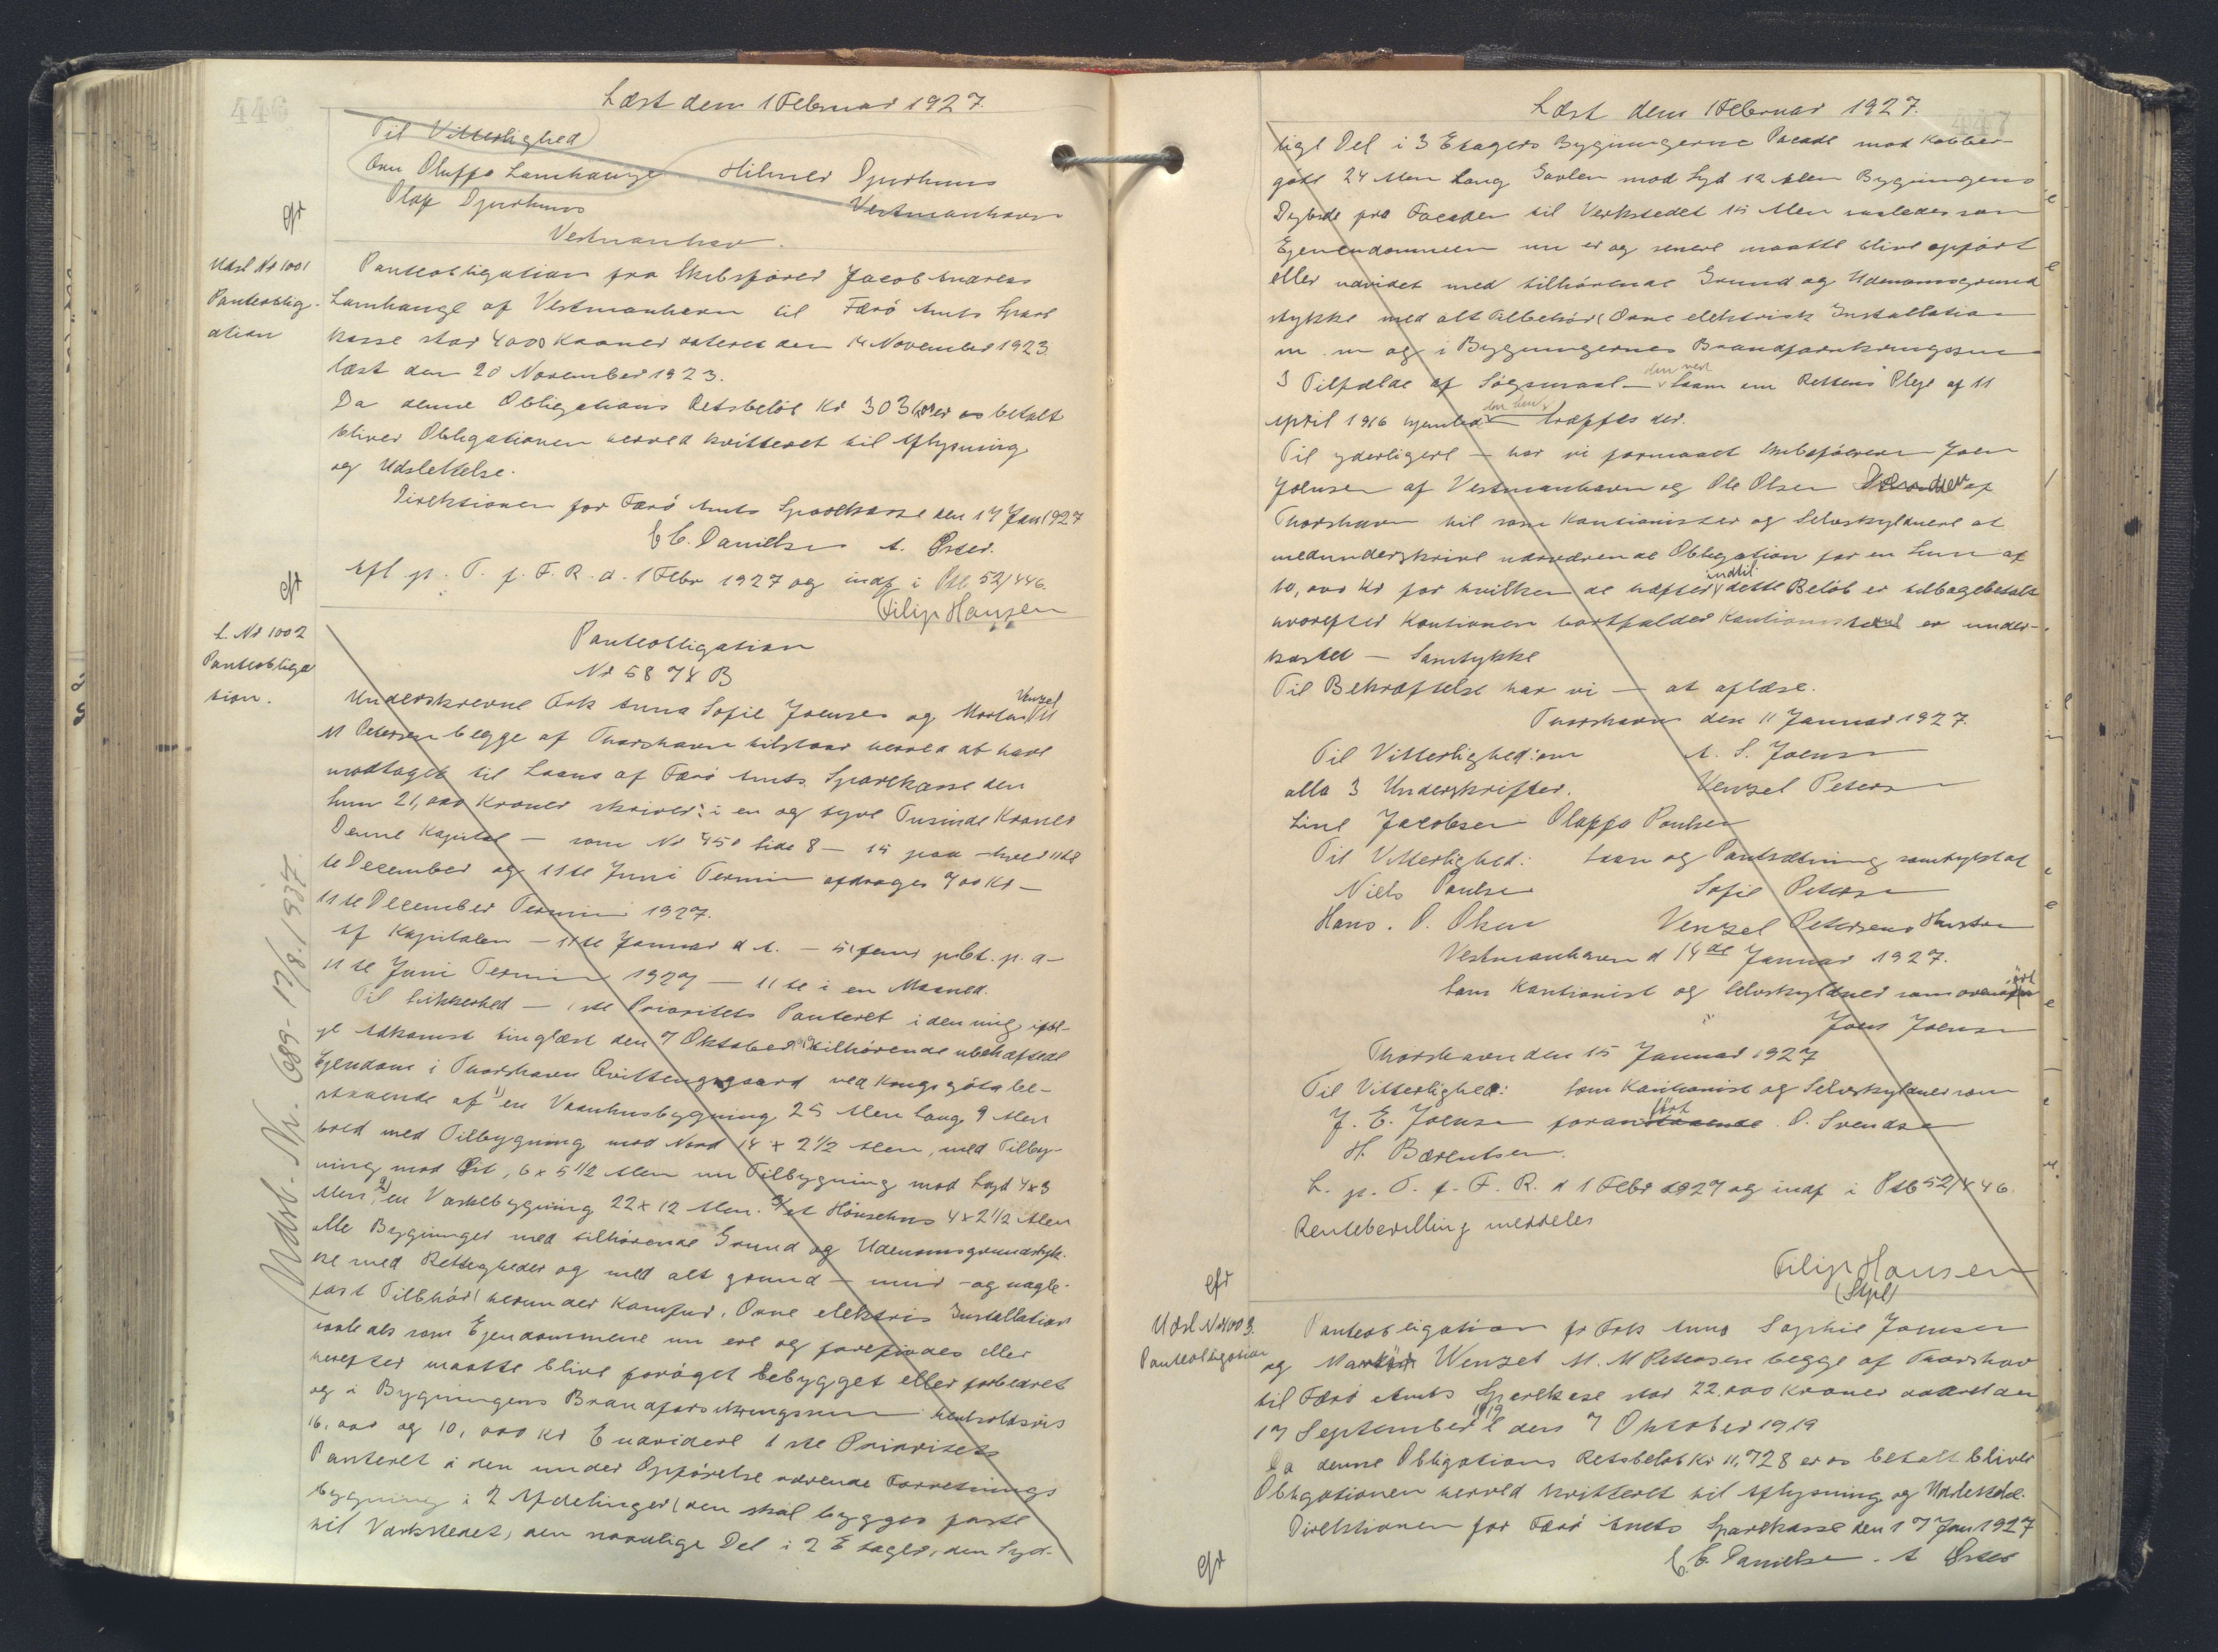 446
Læst den 1 Februar 1927.
Til Vitterlighed
Onn Oluffa Lamhauge Hilmer Djurhuus
Olaf Djurhuus Vestmanhavn
Vestmanhav.
efr
Udsl Nr 1001
Panteoblig-
ation
Panteobligation fra Skibsfører Jacob Andreas
Lamhauge af Vestmanhavn til Færö Amts Spare
kasse stor 4000 Kroner dateret den 14 November 1923.
læst den 20 November 1923.
Da denne Obligations Restbeløb Kr 303 er os betalt
bliver Obligationen herved kvitteret til Aflysning
og Udslettelse.
Direktionen for Færö Amts Sparekasse den 17 Jan 1927
C C. Danielsen A. Öster.
efr
Afl p. T. f. F. R. d. 1 Febr 1927 og indf i Ptb 52/446.
Filip Hansen
L. Nr 1002
Panteobliga
tion.
Panteobligation
Nr 5874 B
Underskrevne Frk Anna Sofie Joensen og Morten Venzel
M Petersen begge af Thorshavn tilstaar herved at have
modtaget til Laans af Færö Amts Sparekasse den
Sum 21,000 Kroner skriver: en og tyve Tusinde Kroner
Denne Kapital — som Nr 450 Side 8 — 15 paa — hver 11te
te December og 11te Juni Termin afdrages 700 Kr —
11te December Termin 1927.
Af Kapitalen — 11te Januar d A. — 5 fem pCt. p. a —
11te Juni Termin 1927 — 11te i en Maaned.
Til Sikkerhed — 1ste Prioritets Panteret i den mig iføl-
ge Adkomst tinglæst den 7 Oktober 1919 tilhørende ubehæftede
Ejendom i Thorshavn Qvittengsgaard ved Kongsgöta be-
staaende af 1) en Vaanhusbygning 25 Alen lang, 9 Alen
bred med Tilbygning mod Nord 14 x 2 1/2 Alen, med Tilby-
ning mod Öst, 6 x 5 1/2 Alen en Tilbygning mod Syd 4 x 3
Alen, 2) en Vaskebygning 22 x 12 Alen. 3/ et Hönsehus 4 x 2 1/2 Alen
alle Bygninger med tilhørende Grund og Udenomsgrundstyk-
ke med Rettigheder og med alt grund — mur — og nagle-
fast Tilbehör (herunder Komfur, Ovne elektris Installation
saaledes som Ejendommene nu ere og forefindes eller
herefter maatte blive forøget bebygget eller forbedret
og i Bygningens Brandforsikringssum henholdsvis
16,000 og 10,000 Kr Endvidere 1ste Prioritets
Panteret i den under Opførelse værende Forretnings
bygning i 2 Afdelinger (den skal bygges fast
til Værkstedet, den nordlige Del i 2 Etager, den Syd-
Udsl. Nr. 689 - 17/8. 1937.
447
Læst den 1 Februar 1927.
lige Del i 3 Etagers Bygningerne Facade mod Kobber-
gade 24 Alen lang Gavlen mod Syd 12 Alen Bygningens
Dybde fra Facaden til Verkstedet 15 Alen saaledes som
Ejenendommen nu er og senere maatte blive opført
eller udvidet med tilhørende Grund og Udenomsgrund
stykke med alt Tilbehör (Ovne elektrisk Installation
m. m og i Bygningernes Brandforsikringssum
I Tilfælde af Søgsmaal — den ved Laam om Rettens Pleje af 11
April 1916 hjemlede træffes der.
Til yderligere — har vi formaaet Skibsføreren Joen
Joensen af Vestmanhavn og Ole Olsen af
Thorshavn til som Kautionister og Selvskyldnere at
medunderskrive nærværende Obligation for en Sum af
10,000 Kr for hvilken de hæfter indtil dette Beløb er tilbagebetalt
hvorefter Kautionen bortfalder Kautionisterne er under-
kastet — Samtykke
Til Bekræftelse har vi — at aflæse.
Thorshavn den 11 Januar 1927.
Til Vitterlighed: om A. S. Joensen
alle 3 Underskrifter. Venzel Petersen
Line Jacobsen Olaffa Poulsen
Til Vitterlighed: Laan og Pantsætning samtykkes
Niels Poulsen Sofie Petersen
Hans. O. Olsen Venzel Petersens Hustru
Vestmanhavn d 14de Januar 1927.
Som Kautionist og Selvskyldner som ovenført
Joen Joensen
Thorshavn den 15 Januar 1927
Til Vitterlighed: Som Kautionist og Selvskyldner som
J. E. Joensen foranført O. Svendsen
H. Bærentsen.
L. p. T. f. F. R. d 1 Febr 1927 og indf i Ptb 52/446.
Rentebevilling meddeles
Filip Hansen
(Stpl)
efr
Udsl Nr 1003.
Panteobligation
Panteobligation fr Frk Anna Sophie Joensen
og Wenzel M. M Petersen begge af Thorshav
til Færö Amts Sparekase stor 22.000 Kroner dateret den
17 September 1919 l den 7 Oktober 1919
Da denne Obligations Restbeløb Kr 11,728 er os betalt bliver
Obligationen herved kvitteret til Aflysning og Udslettelse.
Direktionen for Færö Amts Sparekasse den 17 Jan 1927
C. C. Danielsen. A Öster
efr